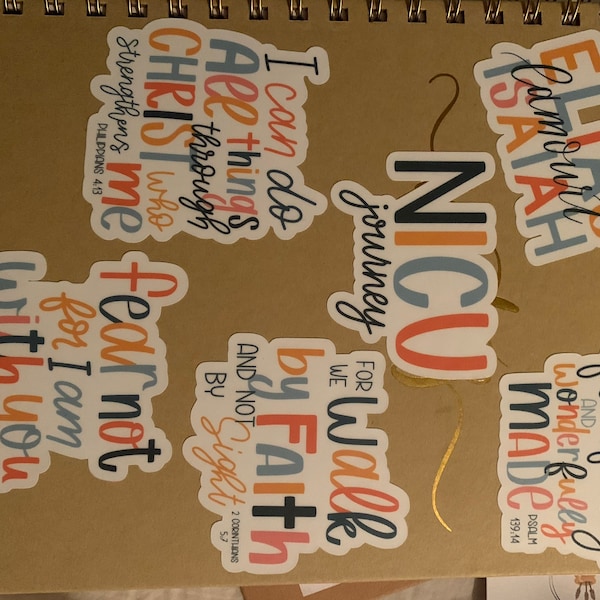 Lamour
ISAIAH
AND
wonderfully
MADE
PSALM
139:14
NICU
journey
I can do
All things
through
CHRIST who
strengthens me
PHILIPPIANS 4:13
FOR
WE Walk
by FAITH
AND NOT
BY Sight
2 CORINTHIANS
5:7
fear not
for I am
with you